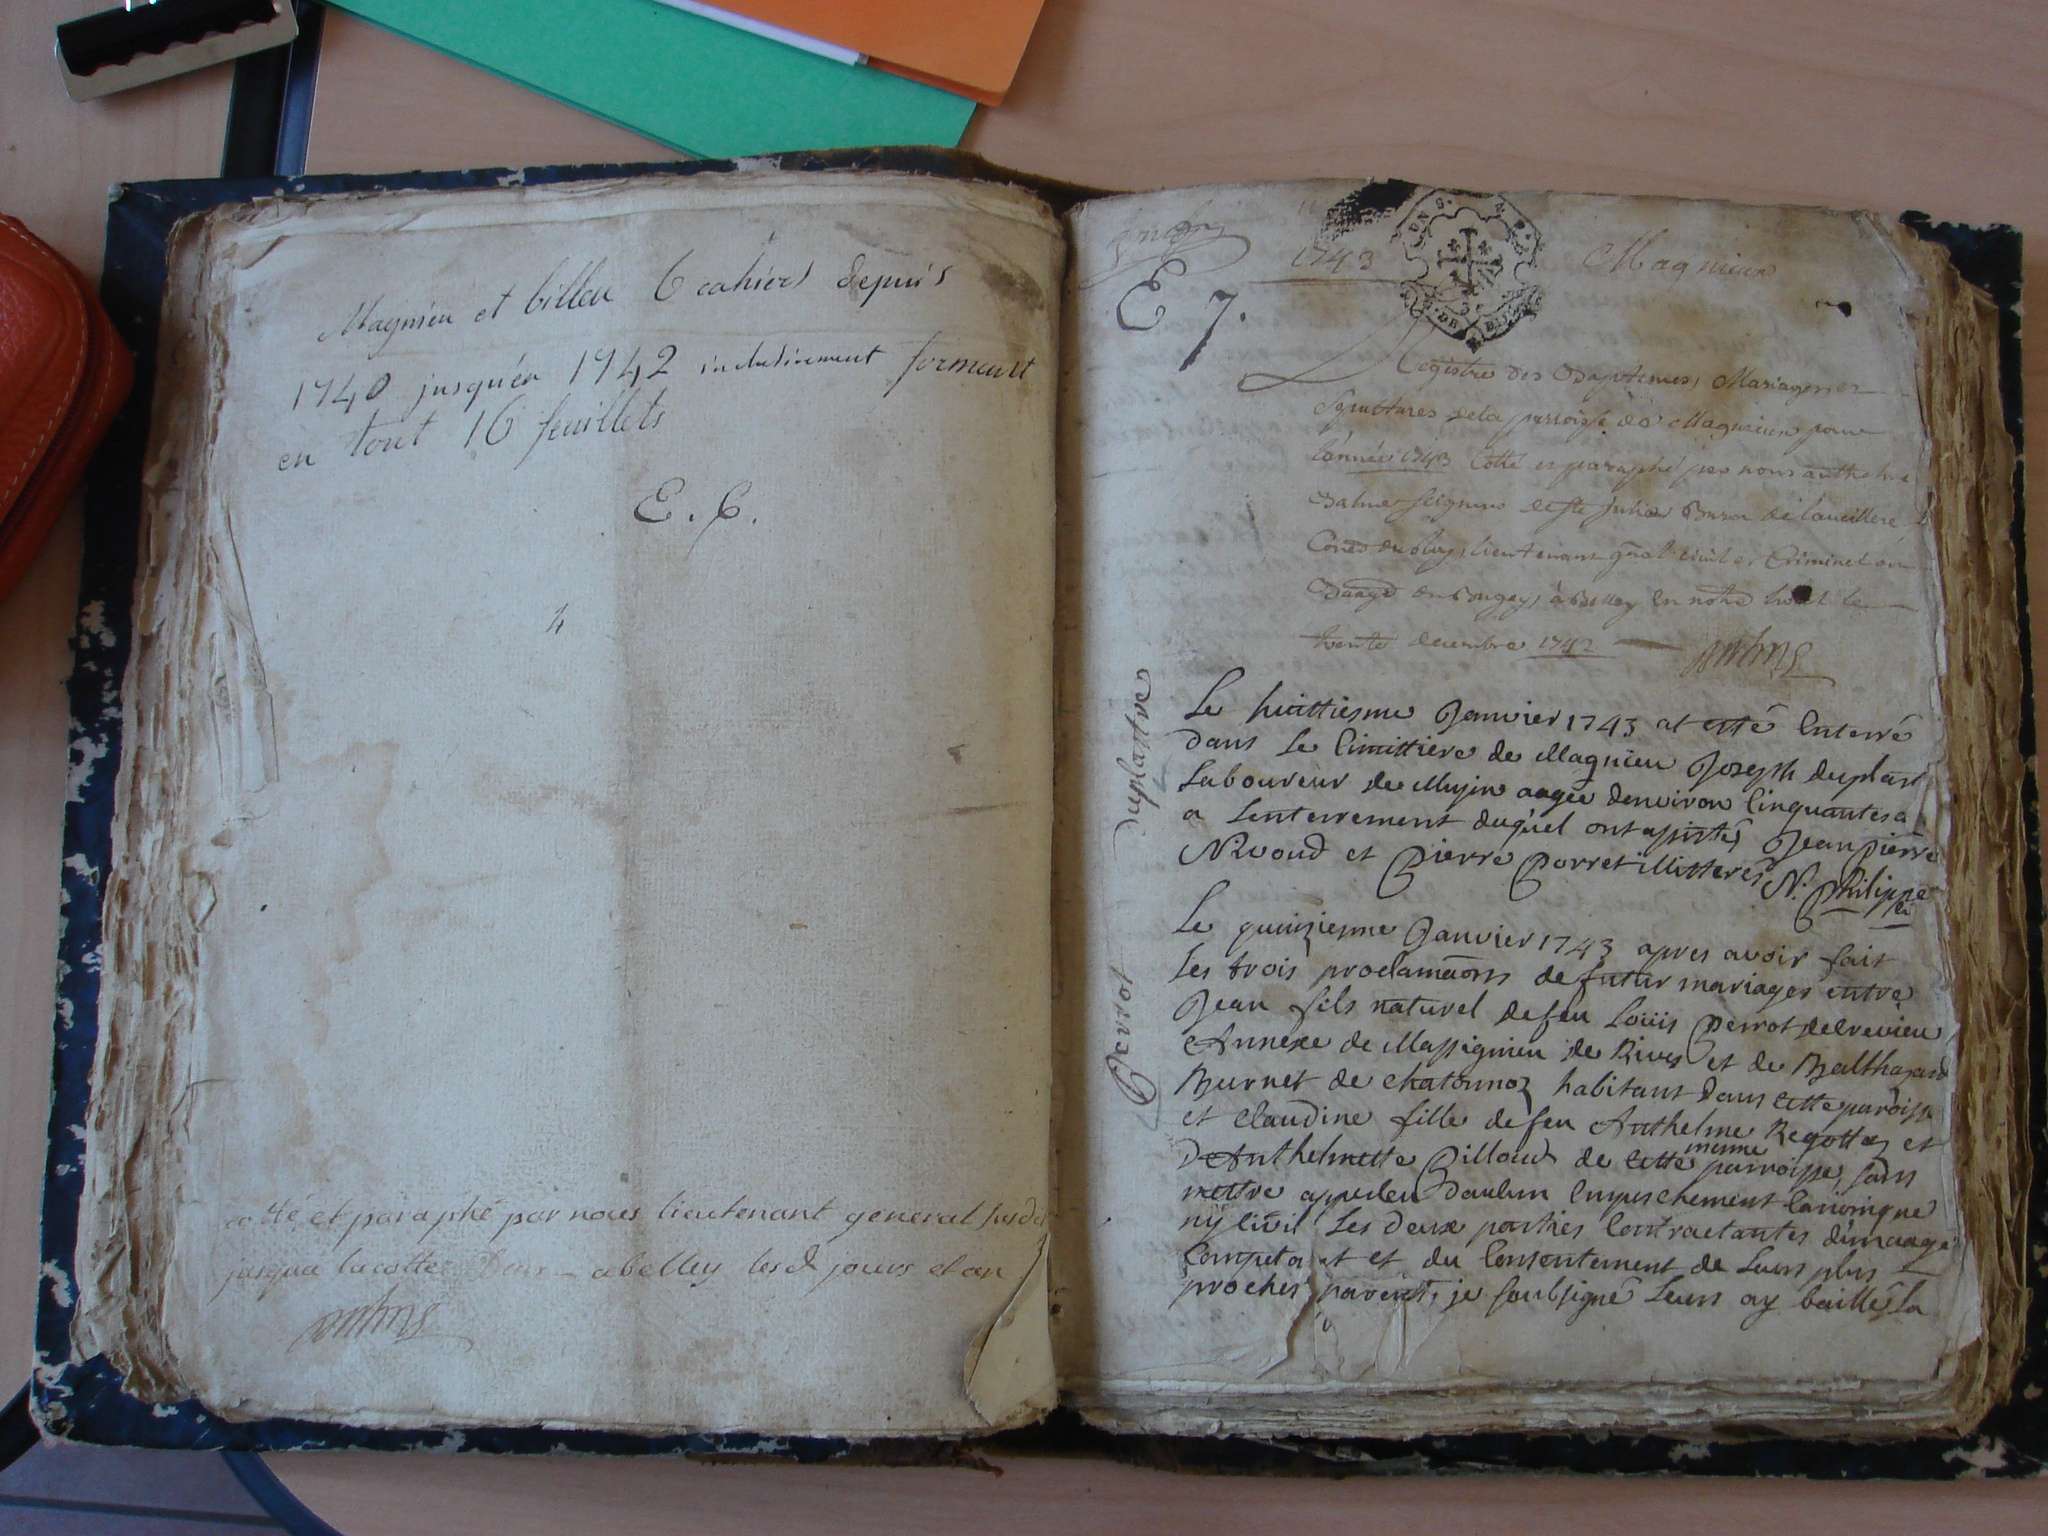 Magnieu et billieu 6 cahiers depuis
1740 jusqu'en 1742 inclusivement formant
en tout 16 feuillets
E. 6.
4
cotté et paraphé par nous lieutenant general susdit
jusqua la cotte Deux abelley lesd jours et an
1743
Magnieu
E 7.
Registre des Baptemes, Mariages et
Sepultures dela parroisse de Magnieu pour
l'année 1743 Cotté et paraphé par nous anthelme
Balme seigneur de ste Julie Baron de
Con.er du Roy, lieutenant gn̄al civil et Criminel au
Baage du Bugey, à Belley en notre hotel le
trente decembre 1742
duplattre
Le huittiesme Janvier 1743 at esté Enterré
dans Le Cimittiere de Magnieu Joseph duplast
Laboureur de Mujin aagée denviron Cinquantes a
a Lenterrement duquel ont assistés Jean Pierre
Nivoud et Pierre Porret illitterés N. Philippe
Perrot
Le quinziesme Janvier 1743 apres avoir fait
Les trois proclamaōns de futur mariages entre
Jean fils naturel de feu Loüis Perrot de
Annexe de Massignieu de Rives et de Balthazard
Burnet de chatonnoz habitant dans cette paroisse
et Claudine fille de feu Anthelme Regottaz et
DAnthelmette Billoud de cette mesme parroisse, sans
mettre appeler Daulun Empeschement Canonique
ny Civil Les deux parties Contractantes d'unaage
Competant et du Consentement de Leurs plus
proches parents, je soubsigné Leurs ay baillé la